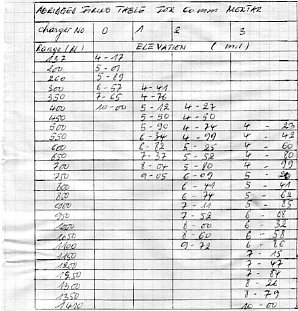 ABRIDGED FIRING TABLE FOR 60mm MORTAR
Charger No 0 1 2 3
Range (M) ELEVATION (mil)
4-17
200 5-01
260 5-89
300 6-57 4-41
350 7-65 4-76
400 10-00 5-12 4-27
450 5-50 4-50
500 5-90 4-74 4-23
550 6-34 4-99 4-42
600 6-82 5-25 4-60
650 7-37 5-52 4-80
700 8-04 5-80 4-99
750 9-05 6-09 5-20
800 6-41 5-41
850 6-74 5-62
900 7-11 5-85
950 7-52 6-08
1000 8-00 6-32
1050 8-60 6-58
1100 9-72 6-86
1150 7-15
1200 7-47
1250 7-84
1300 8-26
1350 8-79
10-00